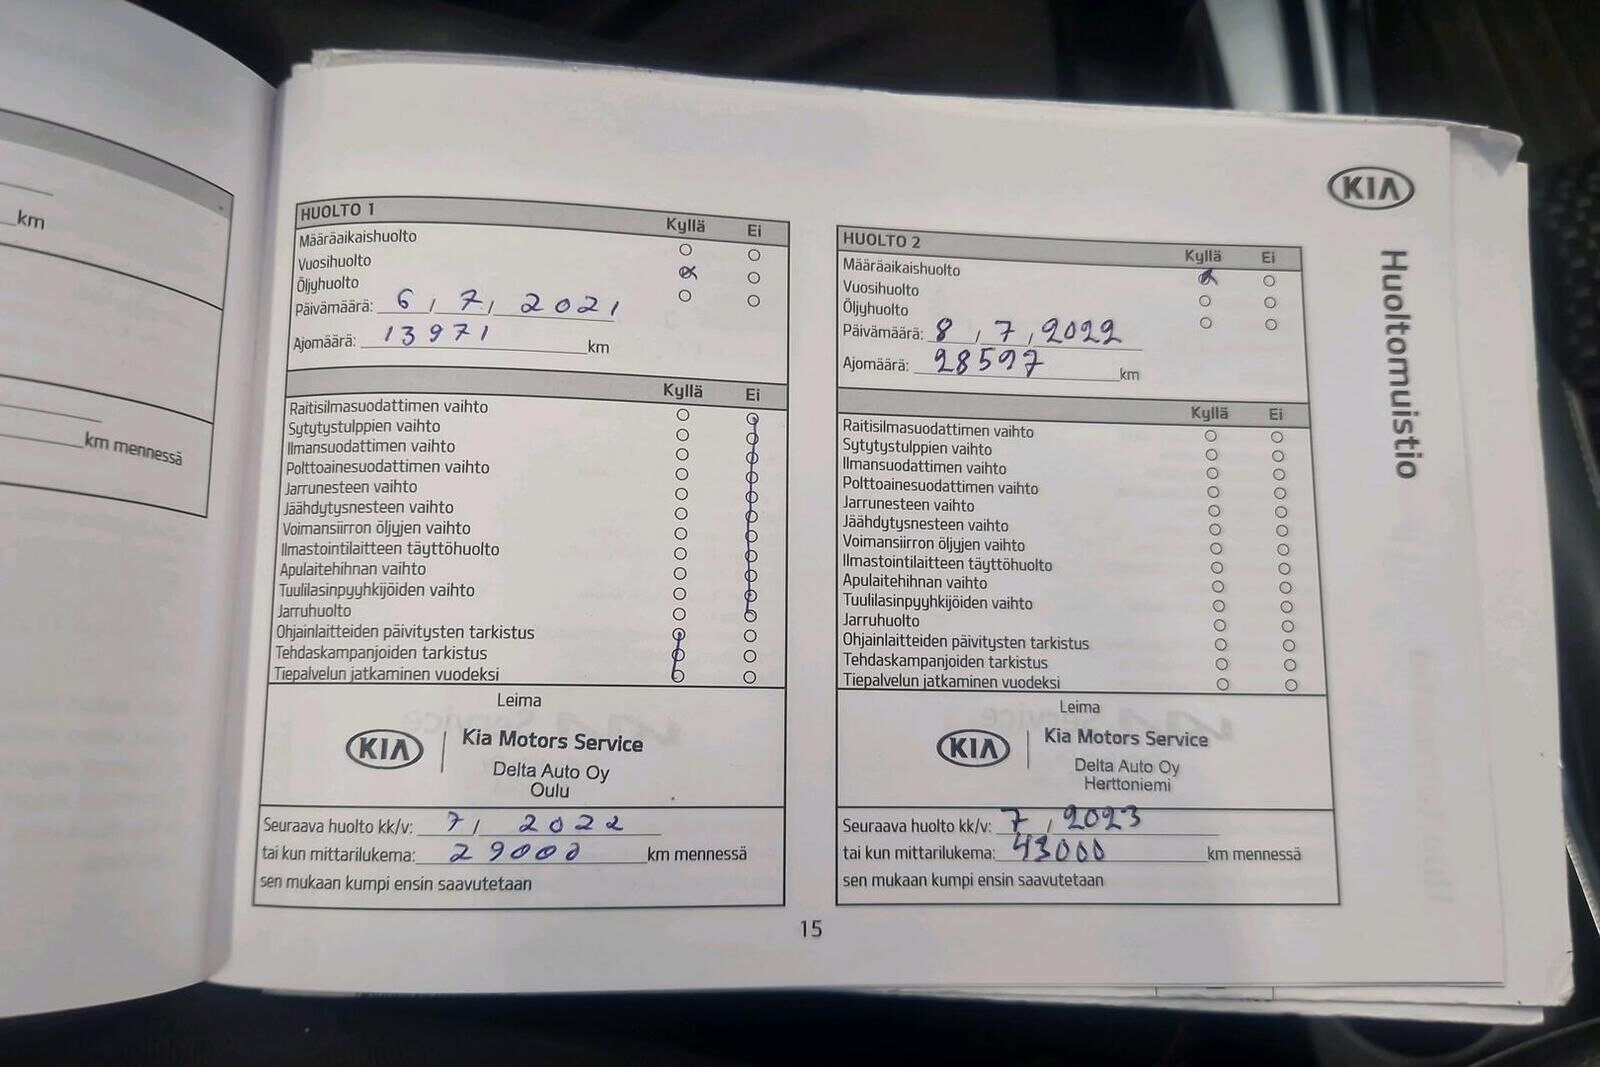 km
km mennessä
HUOLTO 1 Kyllä Ei
Määräaikaishuolto
Vuosihuolto
Öljyhuolto
Päivämäärä: 6 / 7 / 2021
Ajomäärä: 13971 km
Kyllä Ei
Raitisilmasuodattimen vaihto
Sytytystulppien vaihto
Ilmansuodattimen vaihto
Polttoainesuodattimen vaihto
Jarrunesteen vaihto
Jäähdytysnesteen vaihto
Voimansiirron öljyjen vaihto
Ilmastointilaitteen täyttöhuolto
Apulaitehihnan vaihto
Tuulilasinpyyhkijöiden vaihto
Jarruhuolto
Ohjainlaitteiden päivitysten tarkistus
Tehdaskampanjoiden tarkistus
Tiepalvelun jatkaminen vuodeksi
Leima
KIA Kia Motors Service
Delta Auto Oy
Oulu
Seuraava huolto kk/v: 7 / 2022
tai kun mittarilukema: 29000 km mennessä
sen mukaan kumpi ensin saavutetaan
HUOLTO 2 Kyllä Ei
Määräaikaishuolto
Vuosihuolto
Öljyhuolto
Päivämäärä: 8 / 7 / 2022
Ajomäärä: 28597 km
Kyllä Ei
Raitisilmasuodattimen vaihto
Sytytystulppien vaihto
Ilmansuodattimen vaihto
Polttoainesuodattimen vaihto
Jarrunesteen vaihto
Jäähdytysnesteen vaihto
Voimansiirron öljyjen vaihto
Ilmastointilaitteen täyttöhuolto
Apulaitehihnan vaihto
Tuulilasinpyyhkijöiden vaihto
Jarruhuolto
Ohjainlaitteiden päivitysten tarkistus
Tehdaskampanjoiden tarkistus
Tiepalvelun jatkaminen vuodeksi
Leima
KIA Kia Motors Service
Delta Auto Oy
Herttoniemi
Seuraava huolto kk/v: 7 / 2023
tai kun mittarilukema: 43000 km mennessä
sen mukaan kumpi ensin saavutetaan
KIA
Huoltomuistio
15